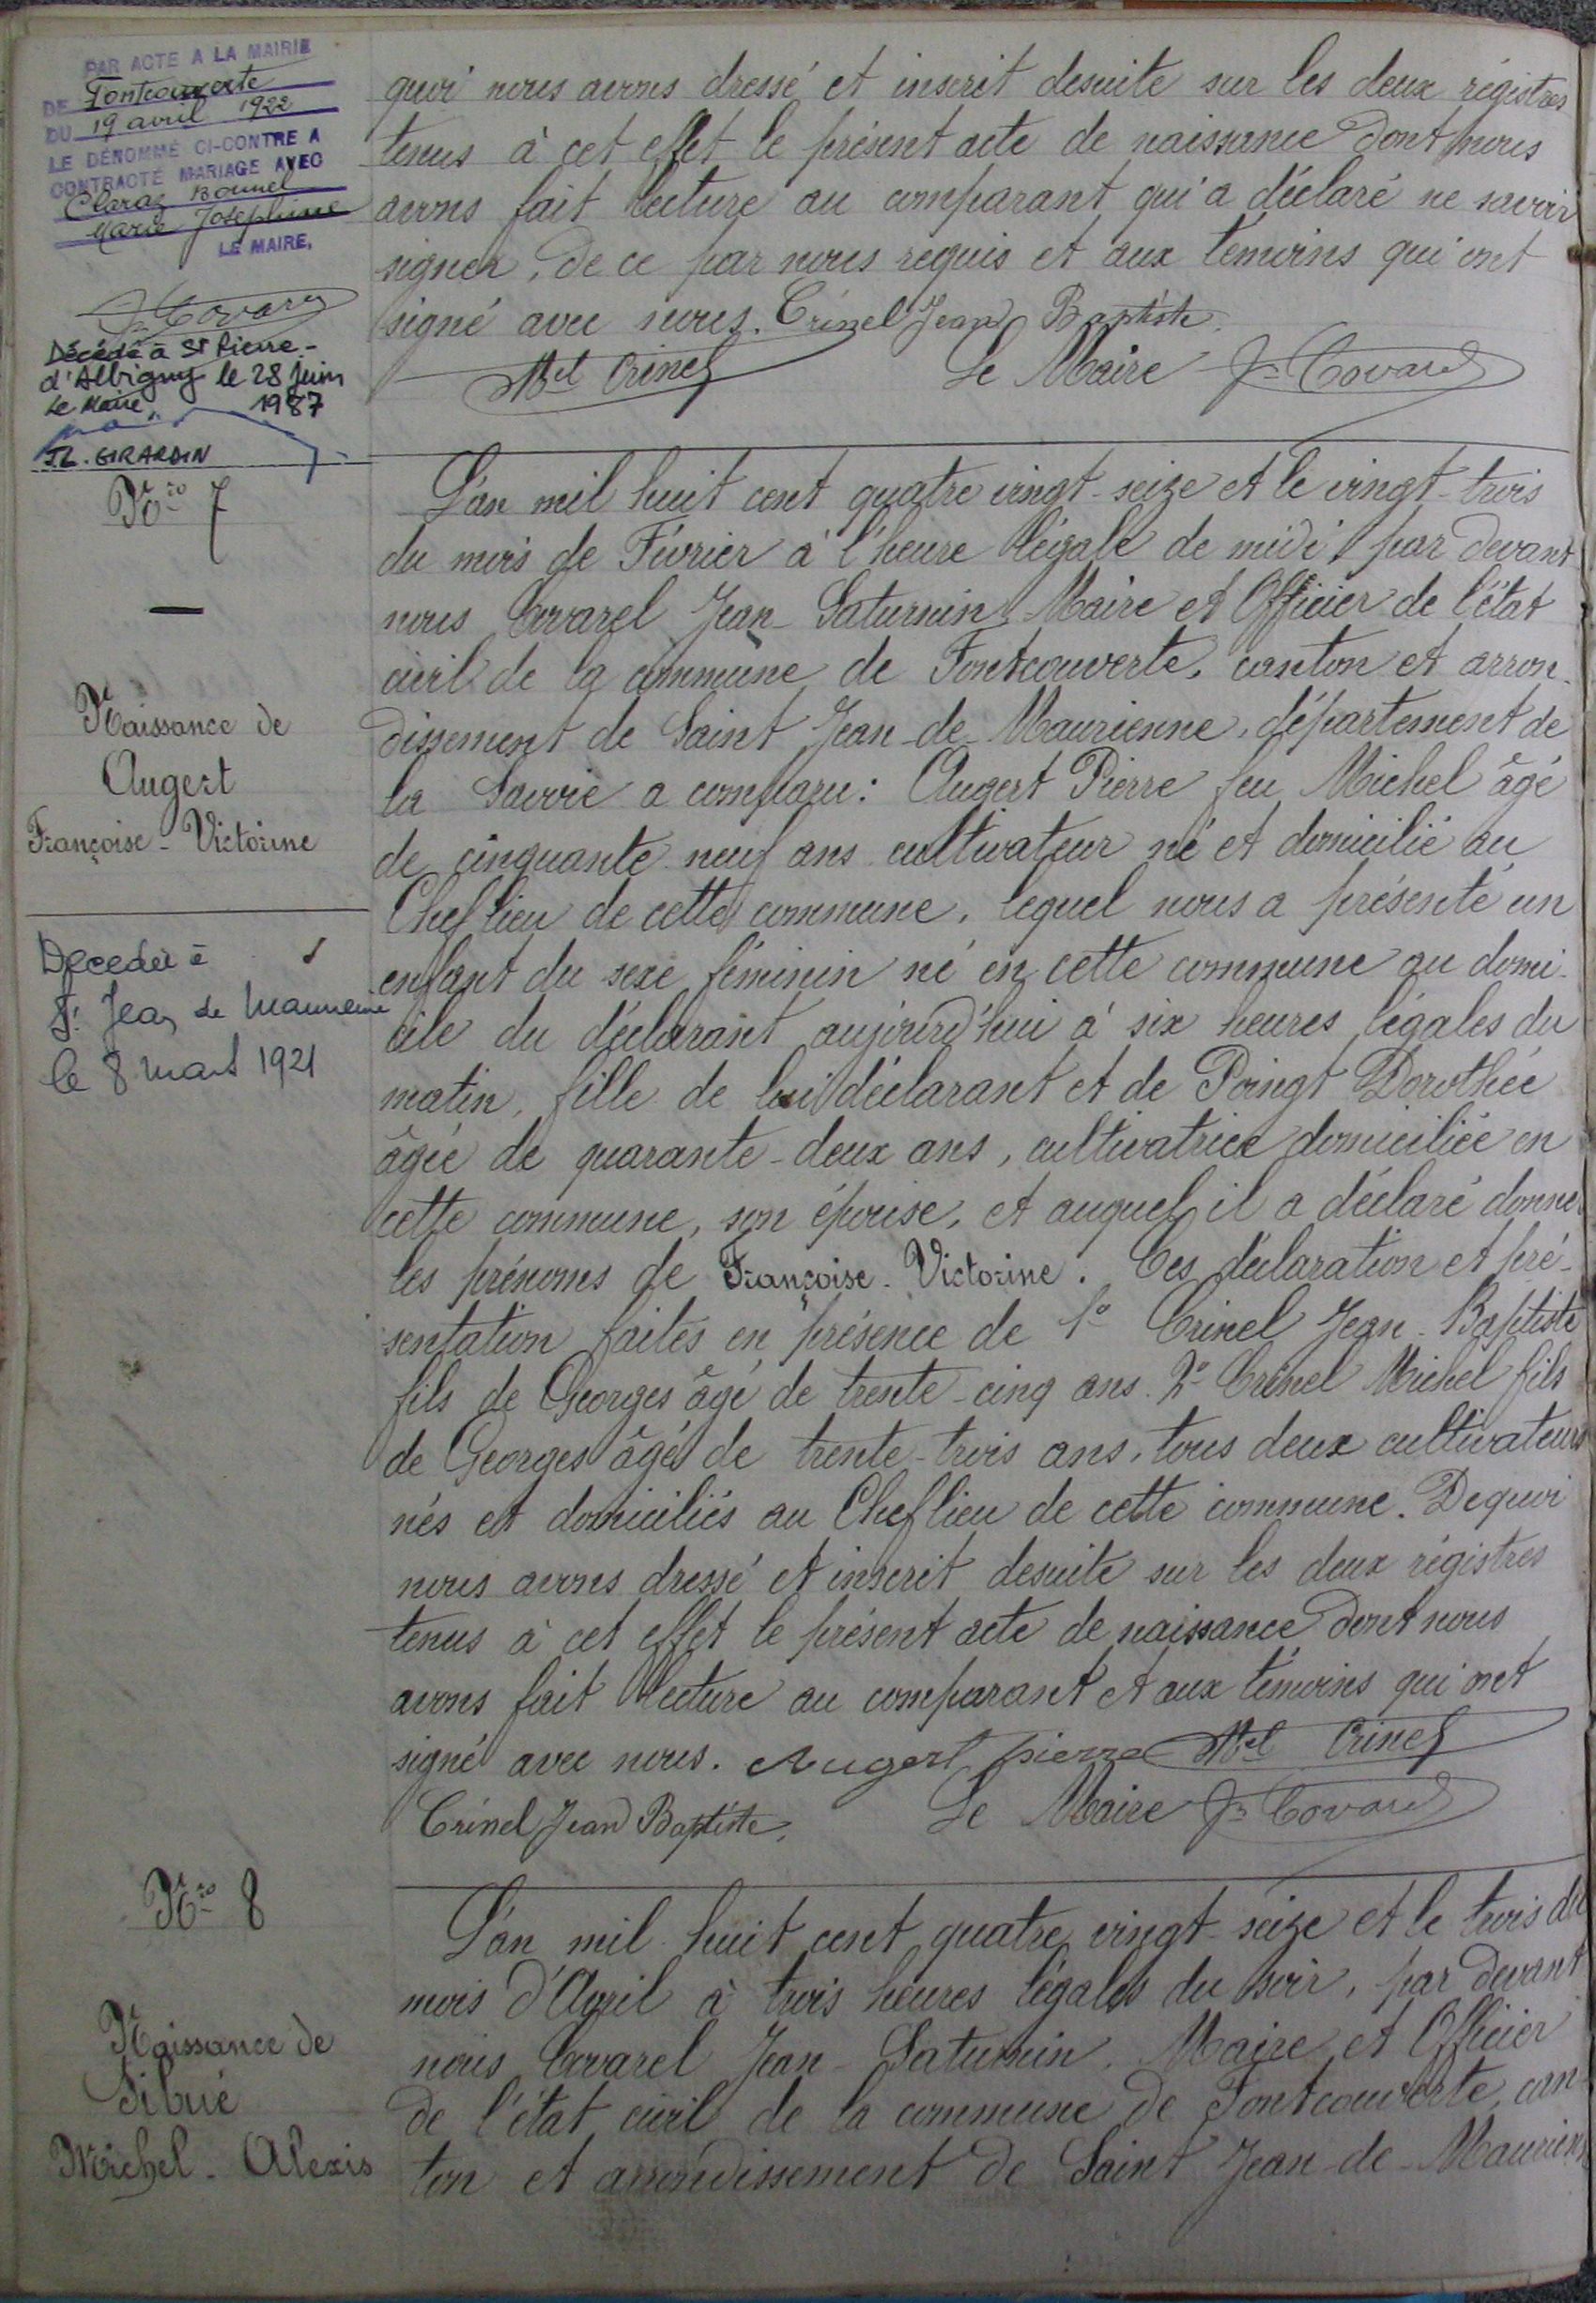 PAR ACTE A LA MAIRIE
DE Fontcouverte
DU 19 avril 1922
LE DÉNOMMÉ CI-CONTRE A
CONTRACTÉ MARIAGE AVEC
Claraz Bonnel
Marie Joséphine
LE MAIRE,
Jn Covarel
Décédé à St Pierre-
d'Albigny le 28 juin
Le Maire, 1987
J.L. GIRARDIN
quoi nous avons dressé et inscrit desuite sur les deux régistres
tenus à cet effet le présent acte de naissance dont nous
avons fait lecture au comparant qui a déclaré ne savoir
signer, de ce par nous requis et aux témoins qui ont
signé avec nous. Crinel Jean Baptiste
Mel Crinel Le Maire Jn Covarel
Nro 7
Naissance de
Augert
Françoise-Victorine
Décédée à
St Jean de Maurienne
le 8 mars 1921
L'an mil huit cent quatre vingt-seize et le vingt-trois
du mois de Février à l'heure légale de midi, par devant
nous Covarel Jean-Saturnin, Maire et Officier de l'état
civil de la commune de Fontcouverte, canton et arron-
dissement de Saint Jean-de-Maurienne, département de
la Savoie a comparu: Augert Pierre feu Michel âgé
de cinquante neuf ans cultivateur né et domicilié au
Cheflieu de cette commune, lequel nous a présenté un
enfant du sexe féminin né en cette commune au domi-
cile du déclarant aujourd'hui à six heures légales du
matin, fille de lui déclarant et de Poingt Dorothée
âgée de quarante-deux ans, cultivatrice domiciliée en
cette commune, son épouse, et auquel il a déclaré donner
les prénoms de Françoise-Victorine. Ces déclaration et pré-
sentation faites en présence de 1º Crinel Jean-Baptiste
fils de Georges âgé de trente-cinq ans. 2º Crinel Michel fils
de Georges âgé de trente-trois ans, tous deux cultivateurs
nés et domiciliés au Cheflieu de cette commune. De quoi
nous avons dressé et inscrit desuite sur les deux régistres
tenus à cet effet le présent acte de naissance dont nous
avons fait lecture au comparant et aux témoins qui ont
signé avec nous. Augert pierre Mel Crinel
Crinel Jean Baptiste, Le Maire Jn Covarel
Nro 8
Naissance de
Sibué
Michel-Alexis
L'an mil huit cent quatre vingt-seize et le trois du
mois d'Avril à trois heures légales du soir, par devant
nous Covarel Jean-Saturnin, Maire et Officier
de l'état civil de la commune de Fontcouverte, can-
ton et arrondissement de Saint Jean-de-Maurienne